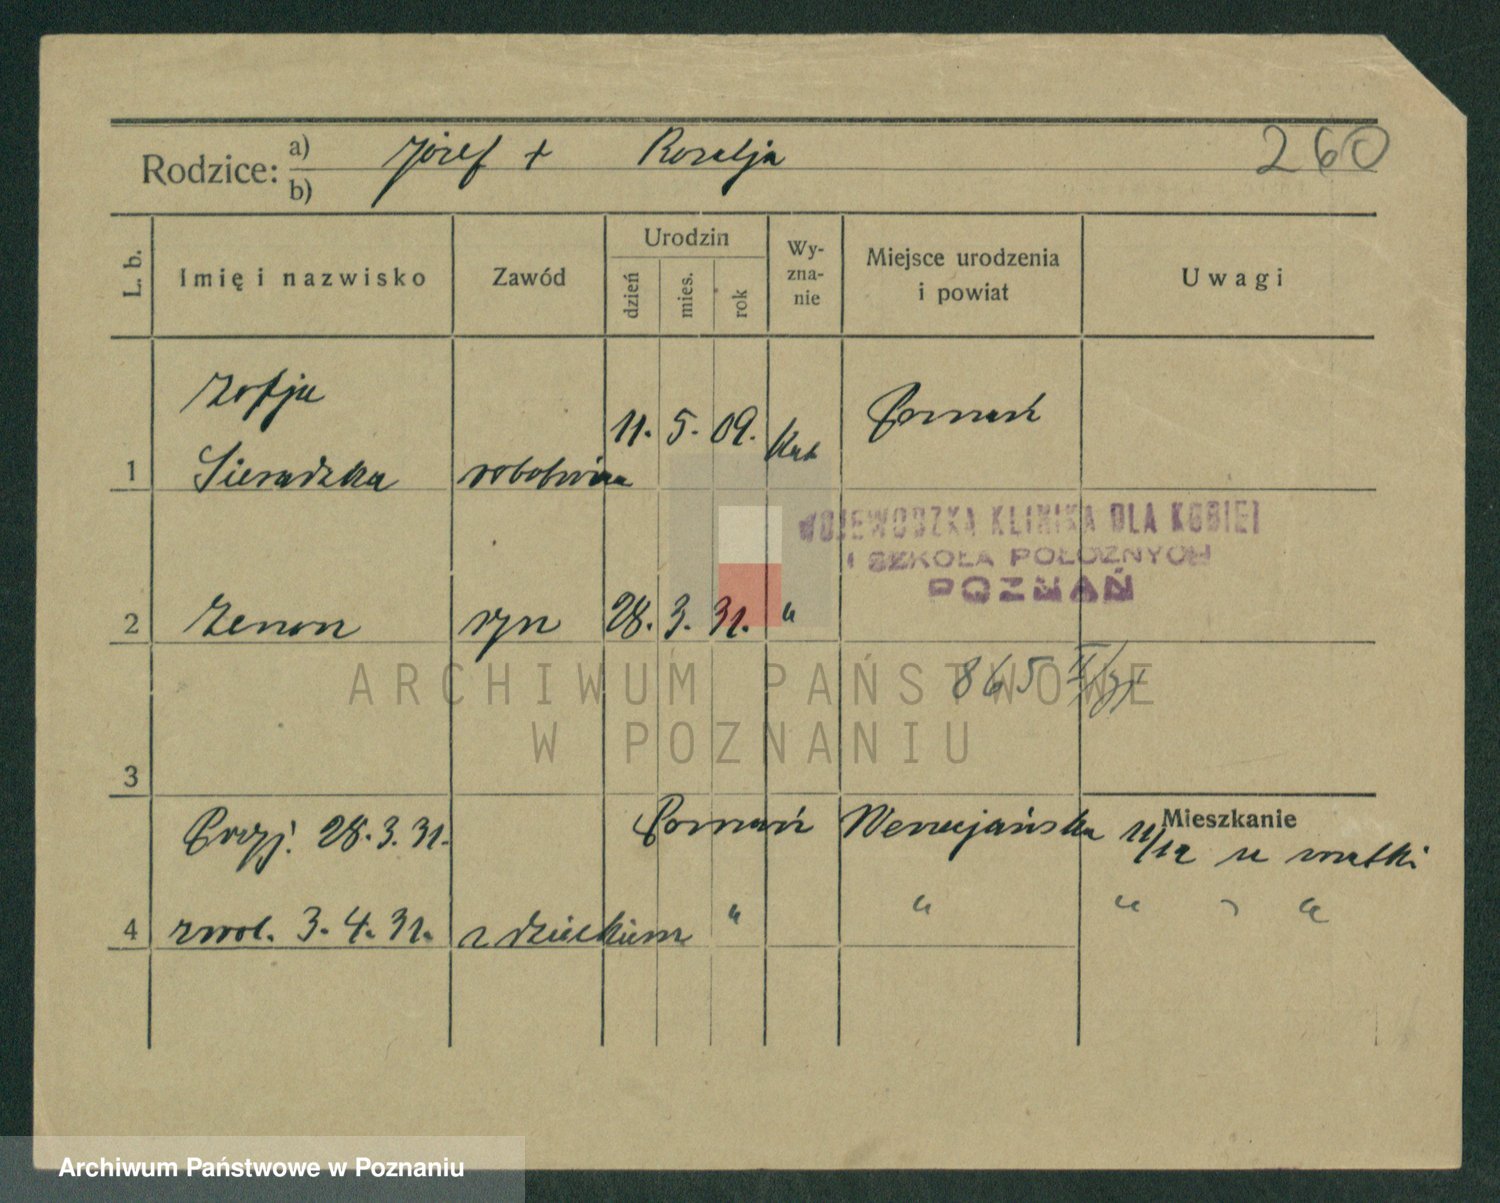 260
Rodzice: a) b) Józef + Rozalja
L. b. Imię i nazwisko Zawód Urodzin dzień mies. rok Wy-zna-nie Miejsce urodzenia i powiat Uwagi
Zofja
1 Sieradzka robotnica 11. 5. 09. kat Poznań
WOJEWODZKA KLINIKA DLA KOBIET
I SZKOŁA POŁOŻNYCH
POZNAŃ
2 Zenon syn 28. 3. 31. "
865 II/31
ARCHIWUM PAŃSTWOWE
W POZNANIU
3
Mieszkanie
Przyj. 28.3.31. Poznań Wenecjańska 11/12 u matki
4 zwol. 3. 4. 31. z dzieckiem " " " " "
Archiwum Państwowe w Poznaniu